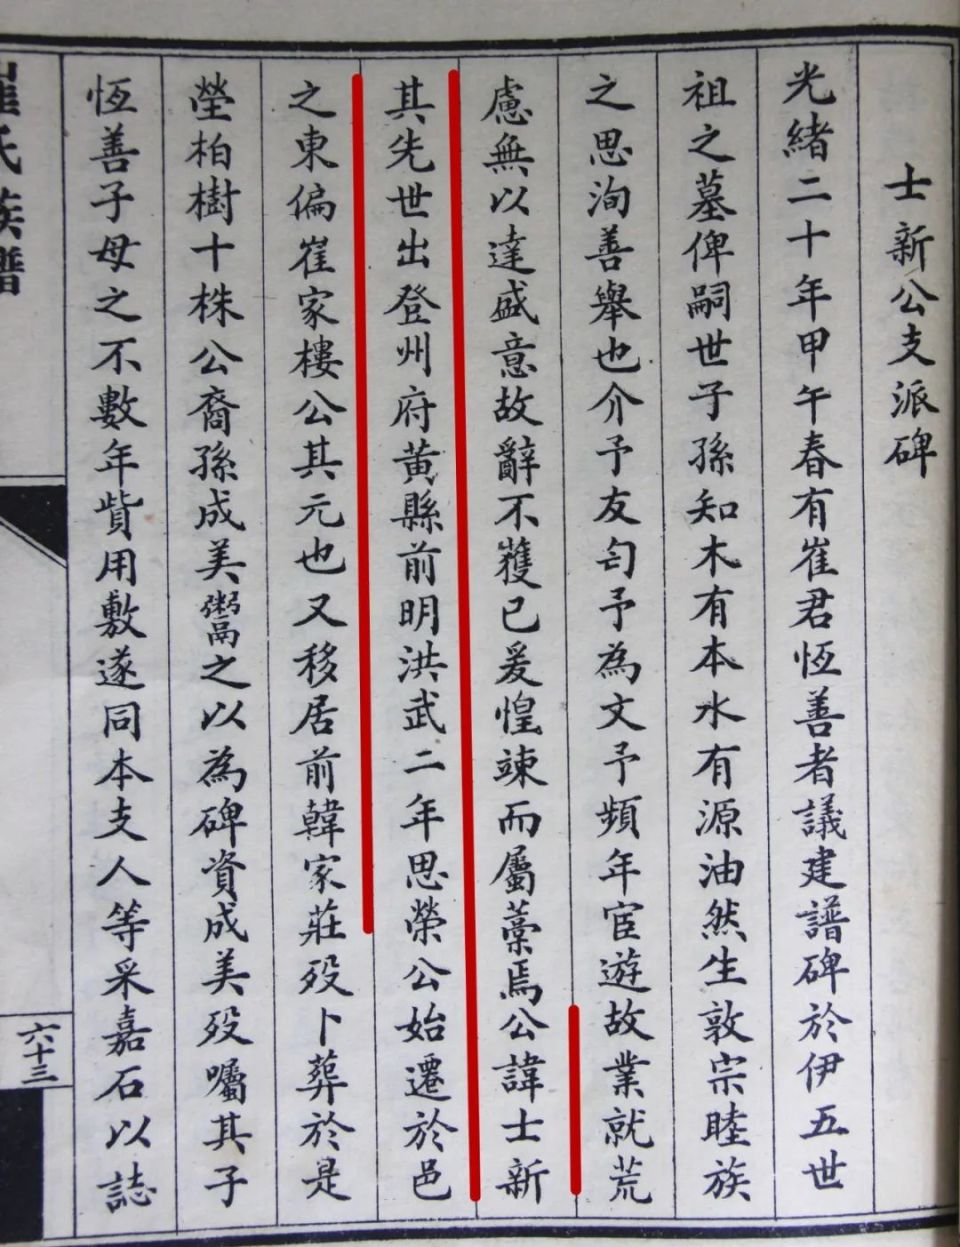 士新公支派碑
光緒二十年甲午春有崔君恆善者議建譜碑於伊五世
祖之墓俾嗣世子孫知木有本水有源油然生敦宗睦族
之思洵善舉也介予友匄予為文予頻年宦遊故業就荒
慮無以達盛意故辭不獲已爰惶竦而屬藁焉公諱士新
其先世出登州府黃縣前明洪武二年思榮公始遷於邑
之東偏崔家樓公其元也又移居前韓家莊歿卜葬於是
塋柏樹十株公裔孫成美鬻之以為碑資成美歿囑其子
恆善子母之不數年貲用敷遂同本支人等采嘉石以誌
崔氏族譜
六十三